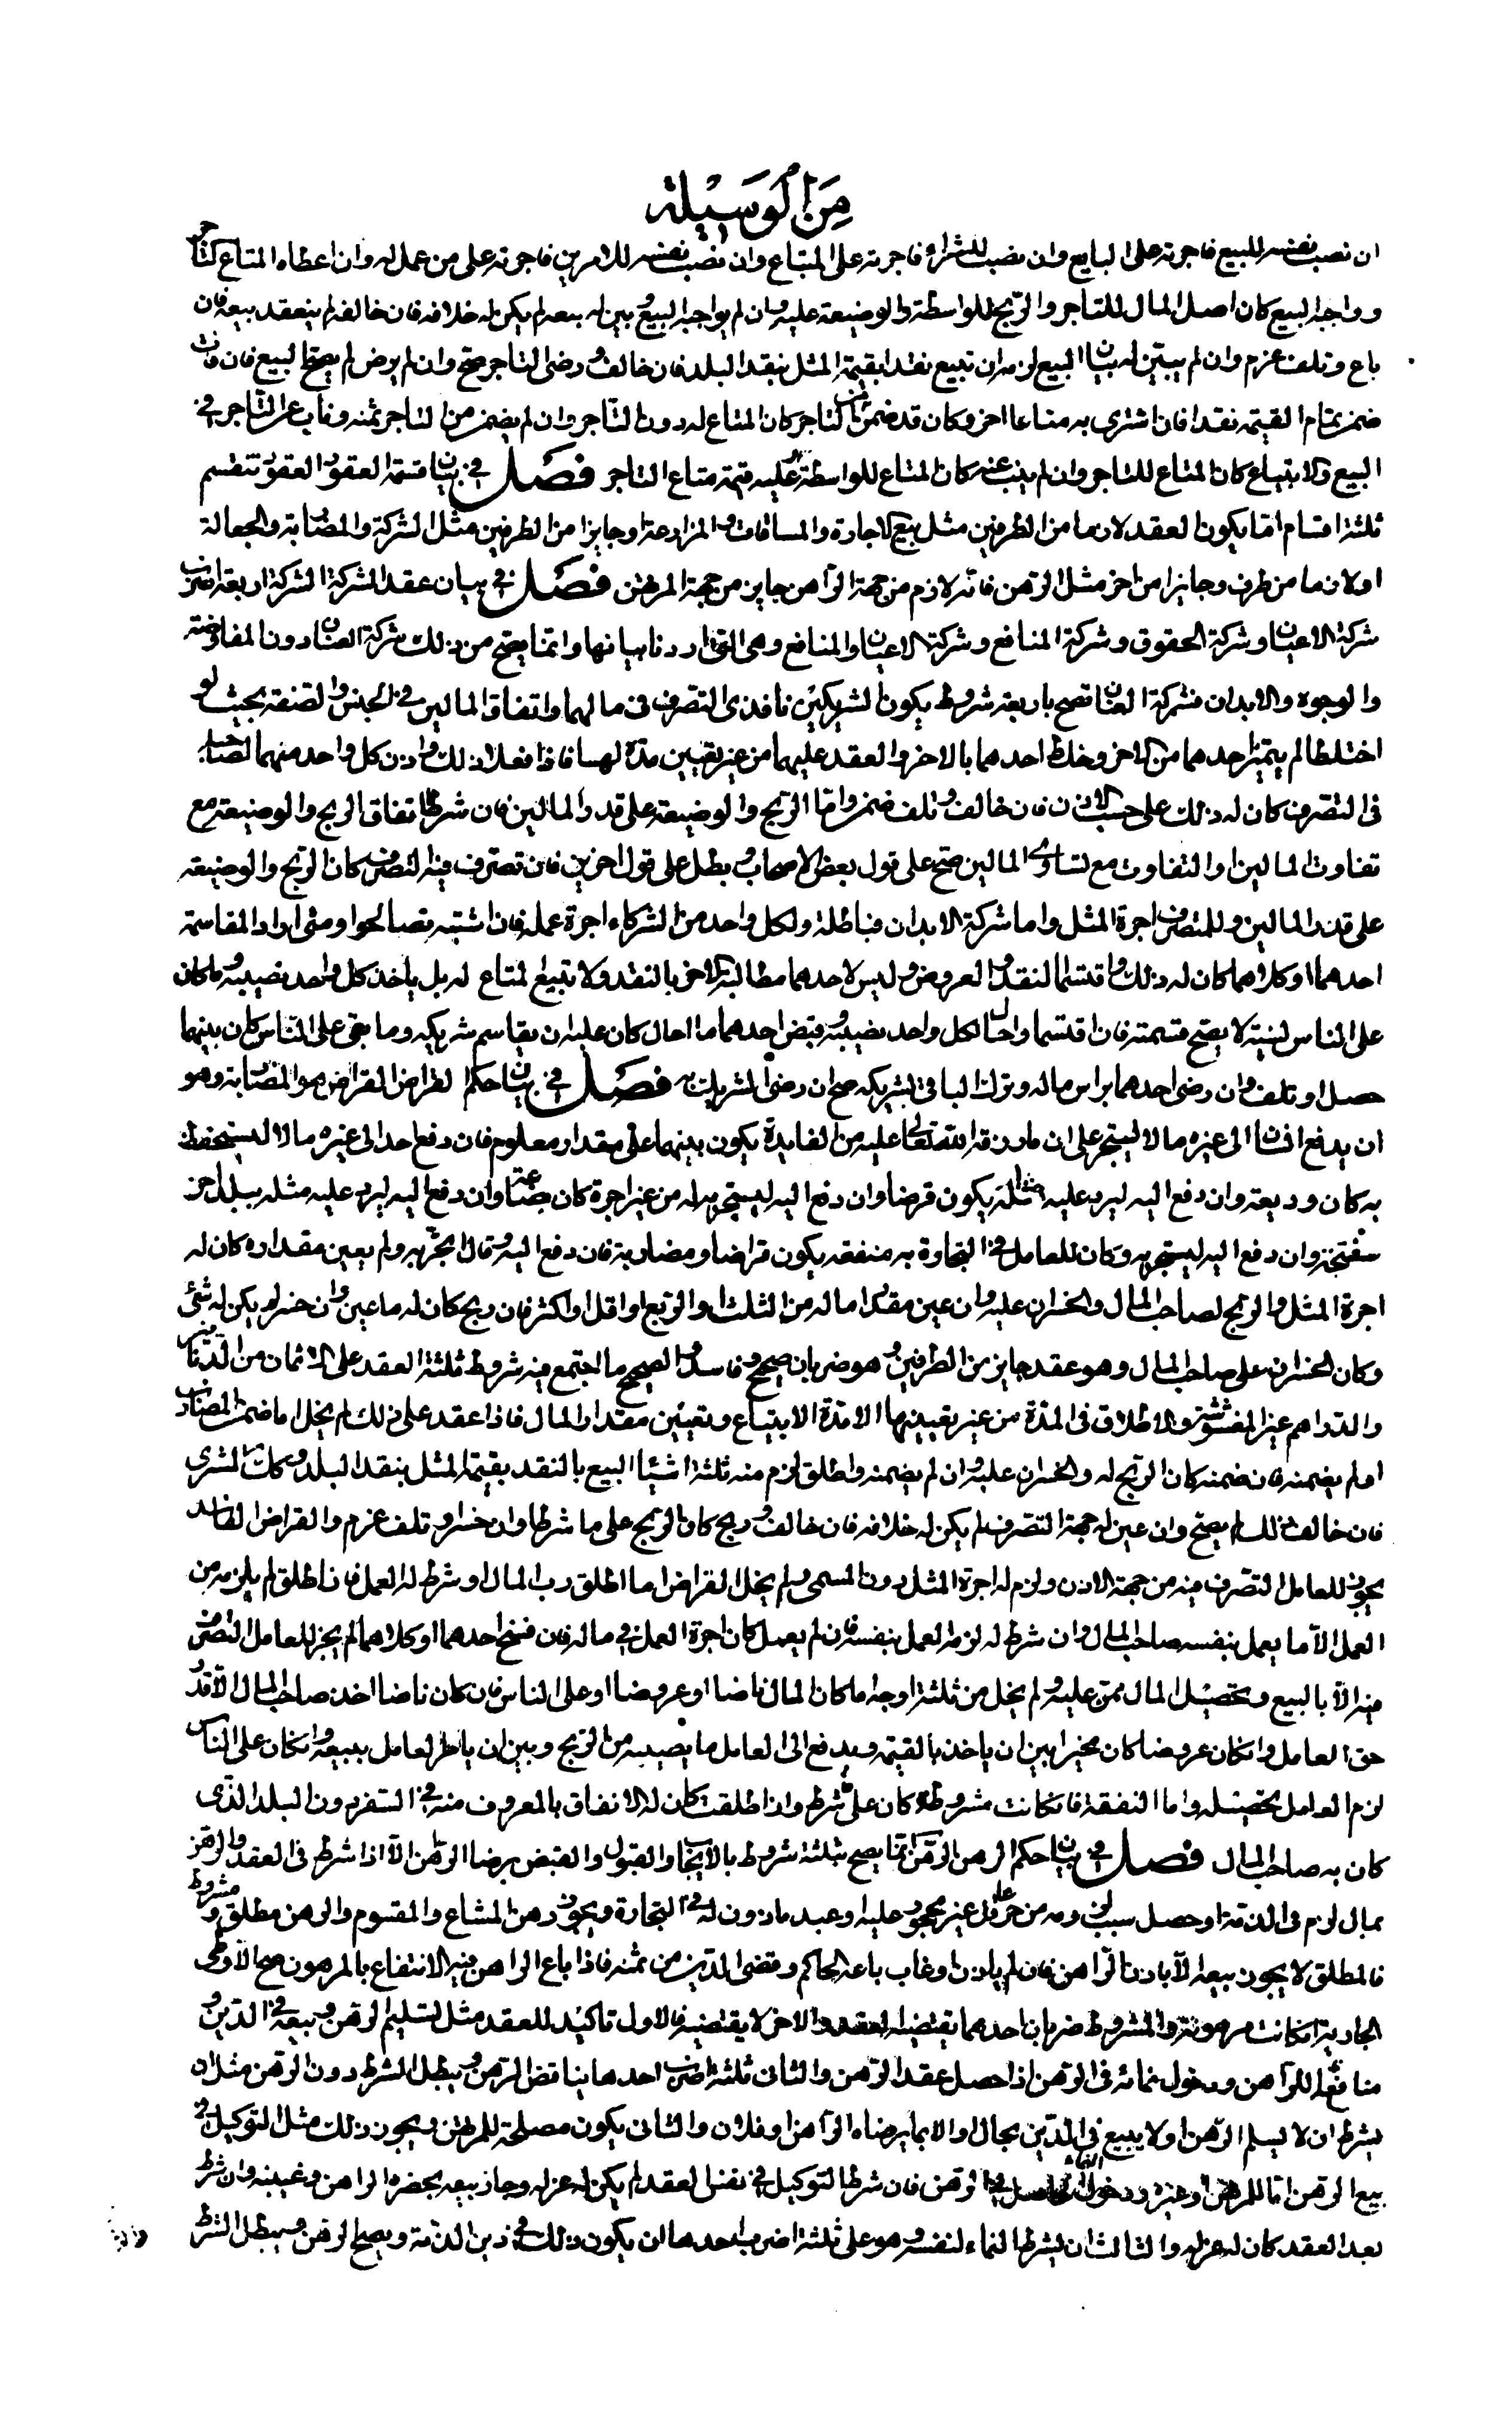 من الوسيلة
ان نصب نفسه للبيع فاجرته على البايع وان نصب للشراء فاجرته على المبتاع وان نصب نفسه للامرين فاجرته على من عمل له وان اعطاه المتاع التاجر
وواجبه البيع كان اصل المال للتاجر والربح للواسطة والوضيعة عليه وان لم يواجبه البيع وبين له بيعه لم يكن له خلافه فان خالفه لم ينعقد بيعه فان
باع وتلف غرم وان لم يبين له بيان البيع لزمه ان تبيع نقدا بقيمة المثل بنقد البلد فان خالف ورضى التاجر صح وان لم يرض لم يصح البيع فان فات
ضمن بتمام القيمة نقدا فان اشترى به متاعا اخر وكان قد ضمن ثمنه التاجر كان المتاع له دون التاجر وان لم يضمن من التاجر ثمنه وناب عن التاجر في
البيع والابتياع كان المتاع للتاجر وان لم ينب عنه كان المتاع للواسطة وعليه قيمة متاع التاجر فصل في بيان قسمة العقود العقود تنقسم
ثلثة اقسام اما يكون العقد لازما من الطرفين مثل بيع الاجارة والمساقات والمزارعة او جايزا من الطرفين مثل الشركة والمضاربة والجعالة
او لازما من طرف وجايزا من اخر مثل الرهن فانه لازم من جهة الراهن جايز من جهة المرتهن فصل في بيان عقد الشركة الشركة اربعة اضرب
شركة الاعيان وشركة الحقوق وشركة المنافع وشركة الاعيان والمنافع وهى التى اردنا بيانها وانما يصح من ذلك شركة العنان دون المفاوضة
والوجوه والابدان فشركة العنان تصح باربعة شروط يكون الشريكين نافذى التصرف في مالهما واتفاق المالين في الجنس والصفة بحيث لو
اختلطا لم يتميز احدهما من الاخر وخلط احدهما بالاخر والعقد عليهما من غير تعيين مدة لهما فاذا فعلا ذلك واذن كل واحد منهما لصاحبه
في التصرف كان له ذلك على حسب الاذن فان خالف وتلف ضمن واما الربح والوضيعة على قدر المالين فان شرطا اتفاق الربح والوضيعة مع
تفاوت المالين او التفاوت مع تساوى المالين صح على قول بعض الاصحاب وبطل على قول اخرين فان تصرف فيه المتصرف كان الربح والوضيعة
على قدر المالين وللمتصرف اجرة المثل واما شركة الابدان فباطلة ولكل واحد من الشركاء اجرة عمله فان اشتبه تصالحوا ومتى اراد المقاسمة
احدهما او كلاهما كان له ذلك واقتسما النقد والعروض وليس لاحدهما مطالبة الاخر بالنقد ولا تبيع المتاع له بل ياخذ كل واحد نصيبه وما كان
على الناس نسية لا يصح قسمته فان اقتسما واحال لكل واحد نصيبه وقبض احدهما ما احال كان عليه ان يقاسم شريكه وما بقى على الناس كان بينهما
حصل او تلف وان رضى احدهما براس ماله وترك الباقي لشريكه صح ان رضى الشريك به فصل في بيان حكم القراض القراض هو المضاربة وهو
ان يدفع انسان الى غيره مالا ليتجر على ان ما رزقه الله تعالى عليه من الفايدة يكون بينهما على مقدار معلوم فان دفع احد الى غيره مالا ليستحفظ
به كان وديعة وان دفع اليه ليرد عليه مثله يكون قرضا وان دفع اليه ليتجر به له من غير اجرة كان بضاعة وان دفع اليه ليرد عليه مثله ببلد اخر
سفتجة وان دفع اليه ليتجر به وكان للعامل في التجارة به منفعة يكون قراضا ومضاربة فان دفع اليه وقال اتجر به ولم يعين مقداره كان له
اجرة المثل والربح لصاحب المال والخسران عليه وان عين مقدارا ماله من الثلث او الربع او اقل او اكثر فان ربح كان له ما عين وان خسر لم يكن له شئ
وكان الخسران على صاحب المال وهو عقد جايز من الطرفين وهو ضربان صحيح وفاسد والصحيح ما اجتمع فيه شروط ثلثة العقد على الاثمان من الدنانير
والدراهم غير المغشوشة والاطلاق في المدة من غير تعيينها الا مدة الابتياع وتعيين مقدار المال فاذا عقد على ذلك لم يخل اما ضمن المضارب
او لم يضمنه فان ضمنه كان الربح له والخسران عليه وان لم يضمنه واطلق لزم منه ثلثة اشياء البيع بالنقد بقيمة المثل بنقد البلد وكذلك الشرى
فان خالف ذلك لم يصح وان عين له جهة التصرف لم يكن له خلافه فان خالف وربح كان الربح على ما شرطا وان خسر او تلف غرم والقراض الفاسد
يجوز للعامل التصرف فيه من جهة الاذن ولزم له اجرة المثل دون المسمى ولم يخل القراض اما اطلق رب المال او شرط له العمل فان اطلق لم يلزمه من
العمل الا ما يعمل بنفسه صاحب المال وان شرط له لزمه العمل بنفسه فان لم يعمل كان اجرة العمل في ماله فان فسخ احدهما او كلاهما لم يجز للعامل التصرف
فيه الا بالبيع وتحصيل المال ممن عليه ولم يخل من ثلثة اوجه اما كان المال ناضا او عروضا او على الناس فان كان ناضا اخذ صاحب المال الا قدر
حق العامل وان كان عروضا كان مخيرا بين ان ياخذ بالقيمة ويدفع الى العامل ما يصيبه من الربح وبين ان يامر العامل ببيعه وان كان على الناس
لزم العامل تحصيله واما النفقة فان كانت مشروطة كان على ما شرط واذا طلقت كان له الانفاق بالمعروف منه في السفر دون البلد الذى
كان به صاحب المال فصل في بيان حكم الرهن الرهن انما يصح بثلثة شروط بالايجاب والقبول والقبض برضا الراهن الا اذا شرط في العقد والرهن
بمال لزم في الذمة او حصل سبب لزومه من حر عاقل غير محجور عليه او عبد ماذون له في التجارة ويجوز رهن المشاع والمقسوم والرهن مطلق ومشروط
فالمطلق لا يجوز بيعه الا باذن الراهن فان لم ياذن او غاب باعه الحاكم وقضى الدين من ثمنه فاذا باع الراهن فيه الانتفاع بالمرهون صح الا وطى
الجارية ان كانت مرهونة والمشروط ضربان احدهما يقتضيه العقد والاخر لا يقتضيه فالاول تاكيد للعقد مثل تسليم الرهن وبيعه في الدين و
منافعه للراهن ودخول نمائه في الرهن اذا حصل عقد الرهن والثاني ثلثة اضرب احدها يناقض الرهن ويبطل الشرط دون الرهن مثل ان
يشرط ان لا يسلم الرهن او لا يبيع في الدين بحال او الا بما يرضاه الراهن او فلان والثاني يكون مصلحة للمرتهن ويجوز ذلك مثل التوكيل في
بيع الرهن اما للمرتهن او غيره ودخول النماء الحاصل في الرهن فان شرط التوكيل في نفس العقد لم يكن له عزله وجاز بيعه بحضرة الراهن وغيبته وان شرط
بعد العقد كان له عزله والثالث ان يشرط النماء لنفسه وهو على ثلثة اضرب احدها ان يكون ذلك في دين الذمة ويصح الرهن ويبطل الشرط